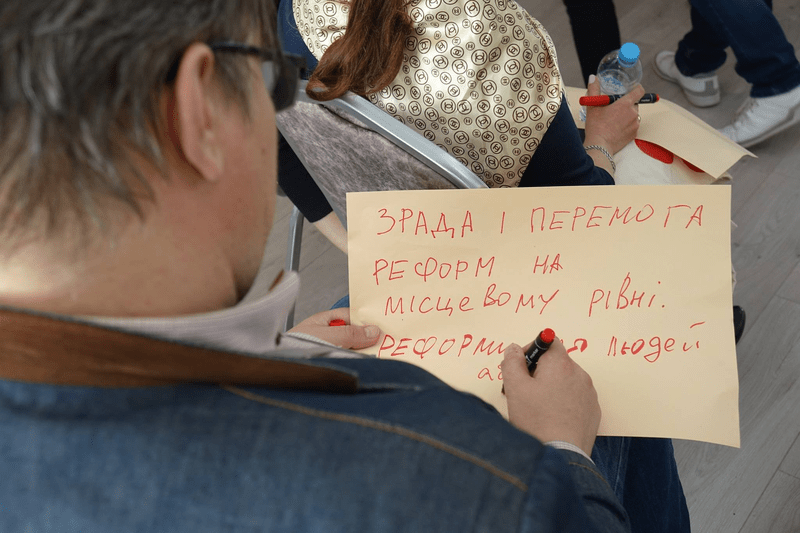 ЗРАДА І ПЕРЕМОГА
РЕФОРМ НА
МІСЦЕВОМУ РІВНІ.
людей